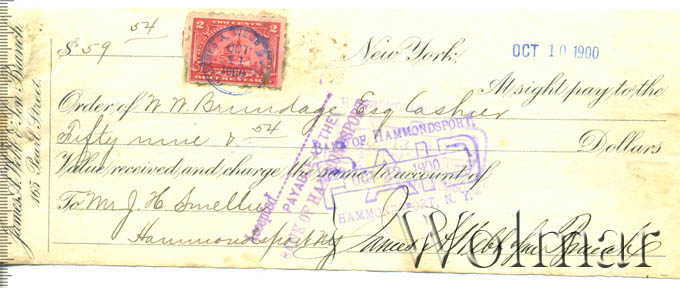 $59 54
New York, OCT 10 1900
At sight pay to the
Order of W. W. Brundage Esq Cashier
Fifty nine & 54 Dollars
Value received and charge the same to account of
To Mr J. H. Smellie
Hammondsport NY
James A. Webb & Son Branch
165 Pearl Street.
2 2
OCT
1900
Accepted
PAYABLE AT THE
BANK OF HAMMONDSPORT
BANK OF HAMMONDSPORT,
PAID
1900
HAMMONDSPORT, N. Y.
Wolmar